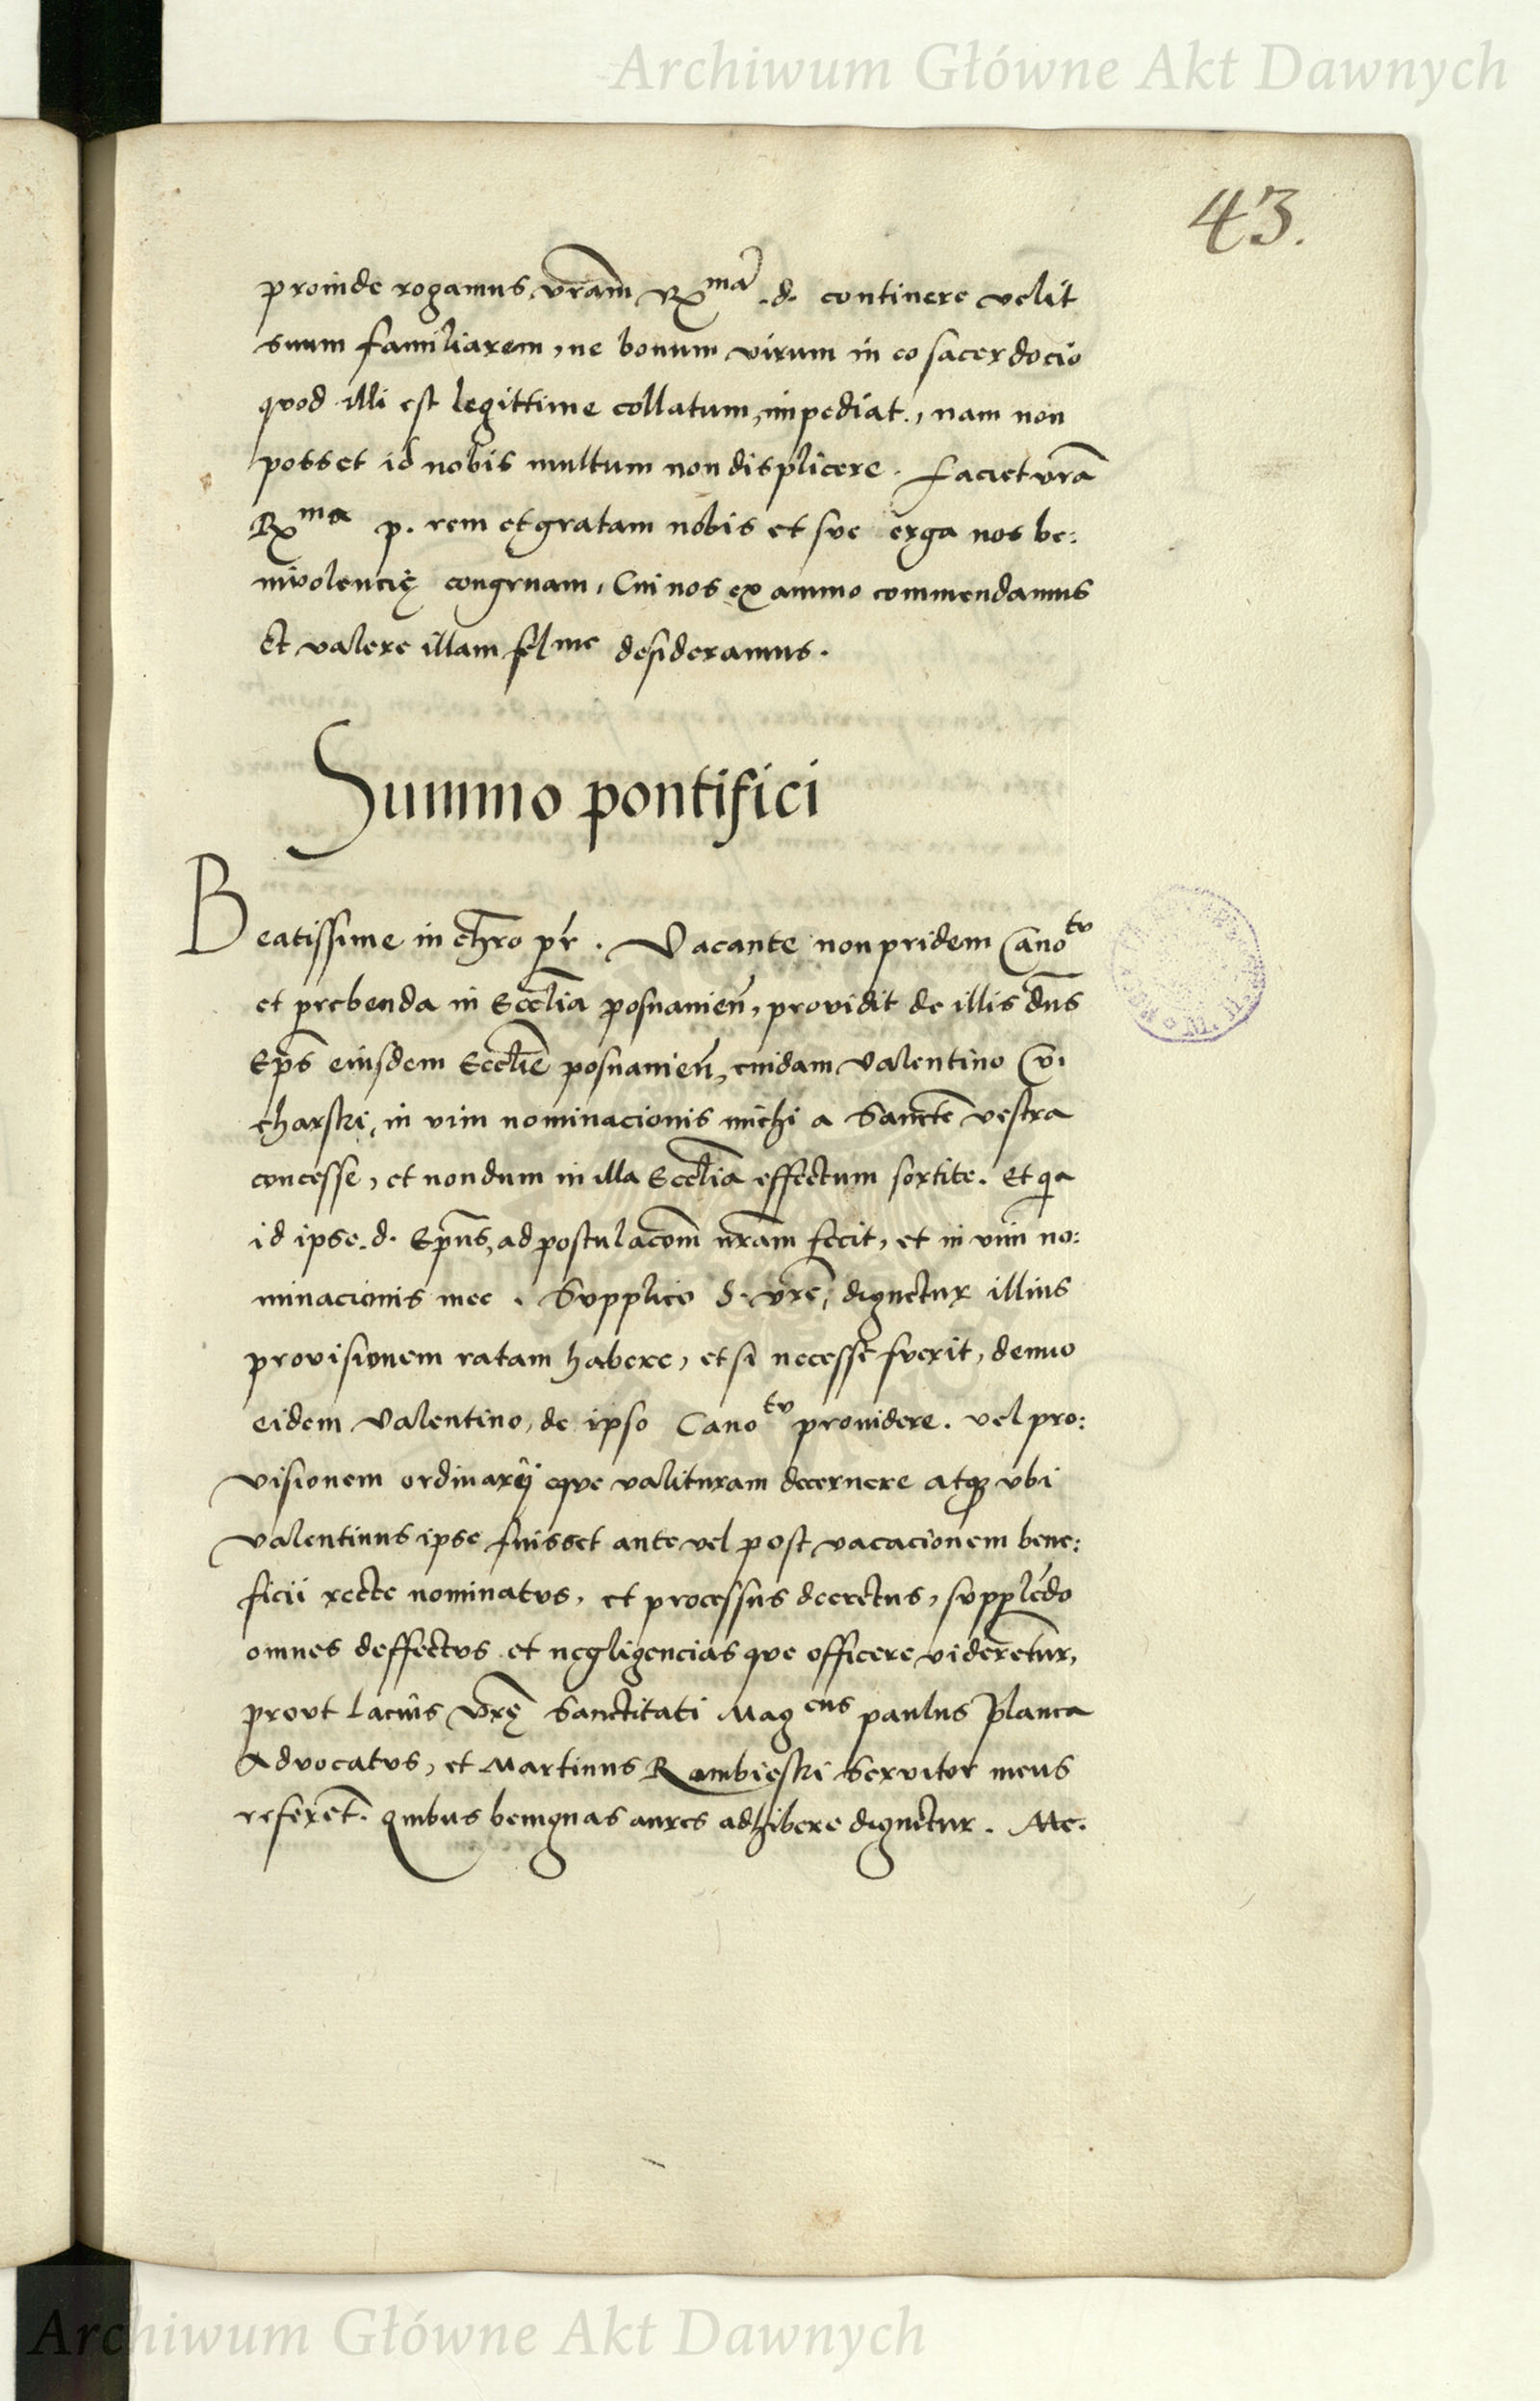 Archiwum Główne Akt Dawnych
43.
proinde rogamus, vrãm Rx^mã .d. continere velit
suum familiarem, ne bonum virum in eo sacerdocio
quod illi est legittime collatum, impediat., nam non
posset id nobis multum non displicere. faciet vrã
Rx^ma p. rem et gratam nobis et sue erga nos be:
nivolencię congruam, Cui nos ex animo commendamus
Et valere illam fel^me desideramus.
Summo pontifici
Beatissime in chro pr̃. Vacante non pridem Cano^tu
et prebenda in Eccl̃ia posnanieñ, providit de illis dñs
Ep̃s eiusdem Eccl̃ie posnanieñ, cuidam Valentino Cvi
charski, in vim nominacionis michi a Sanctẽ vestra
concesse, et nondum in illa Eccl̃ia effectum sortite. Et qa
id ipse .d. Ep̃us, ad postulacõm nrãm fecit, et in vim no:
minacionis mee. Supplico S. vrẽ, dignetur illius
provisionem ratam habere, et si necesse fuerit, denuo
eidem Valentino, de ipso Cano^tu providere. vel pro:
visionem ordinarij eque valituram decernere atq3 vbi
Valentinus ipse fuisset ante vel post vacacionem bene:
ficii recte nominatus, et processus decretus, supplẽdo
omnes deffectus et negligencias que officere viderentur,
prout laciũs vrę Sanctitati Mag^cus paulus Planca
Advocatus, et Martinus Rambieski Servitor meus
referẽt. quibus benignas aures adhibere dignetur. Me.
Archiwum Główne Akt Dawnych